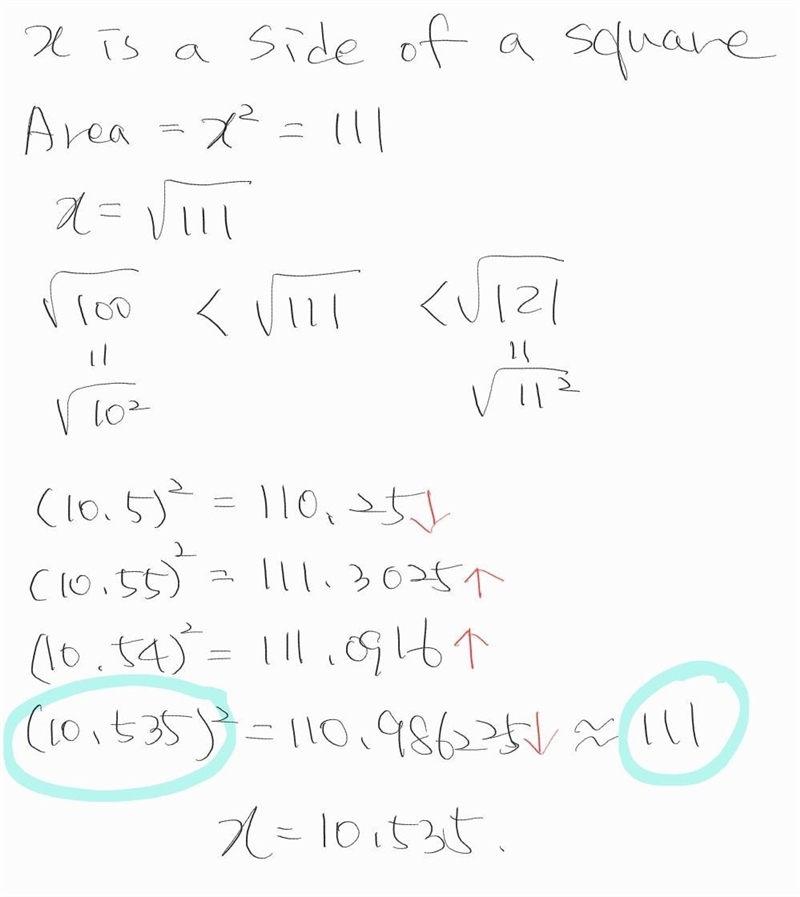 x is a side of a square
Area = x² = 111
x = √111
√100 < √111 < √121
= =
√10² √11²
(10.5)² = 110.25↓
(10.55)² = 111.3025↑
(10.54)² = 111.0916↑
(10.535)² = 110.986225↓ ≈ 111
x = 10.535.